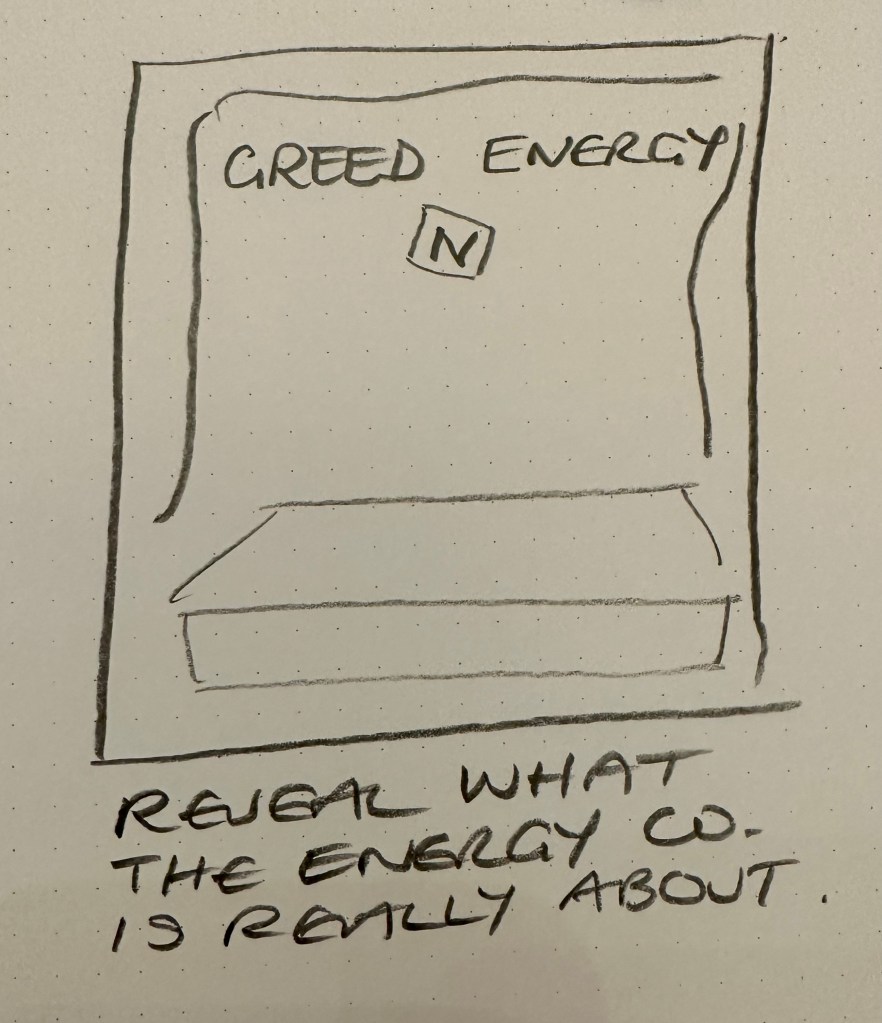 GREED ENERGY
N
REVEAL WHAT
THE ENERGY CO.
IS REALLY ABOUT.